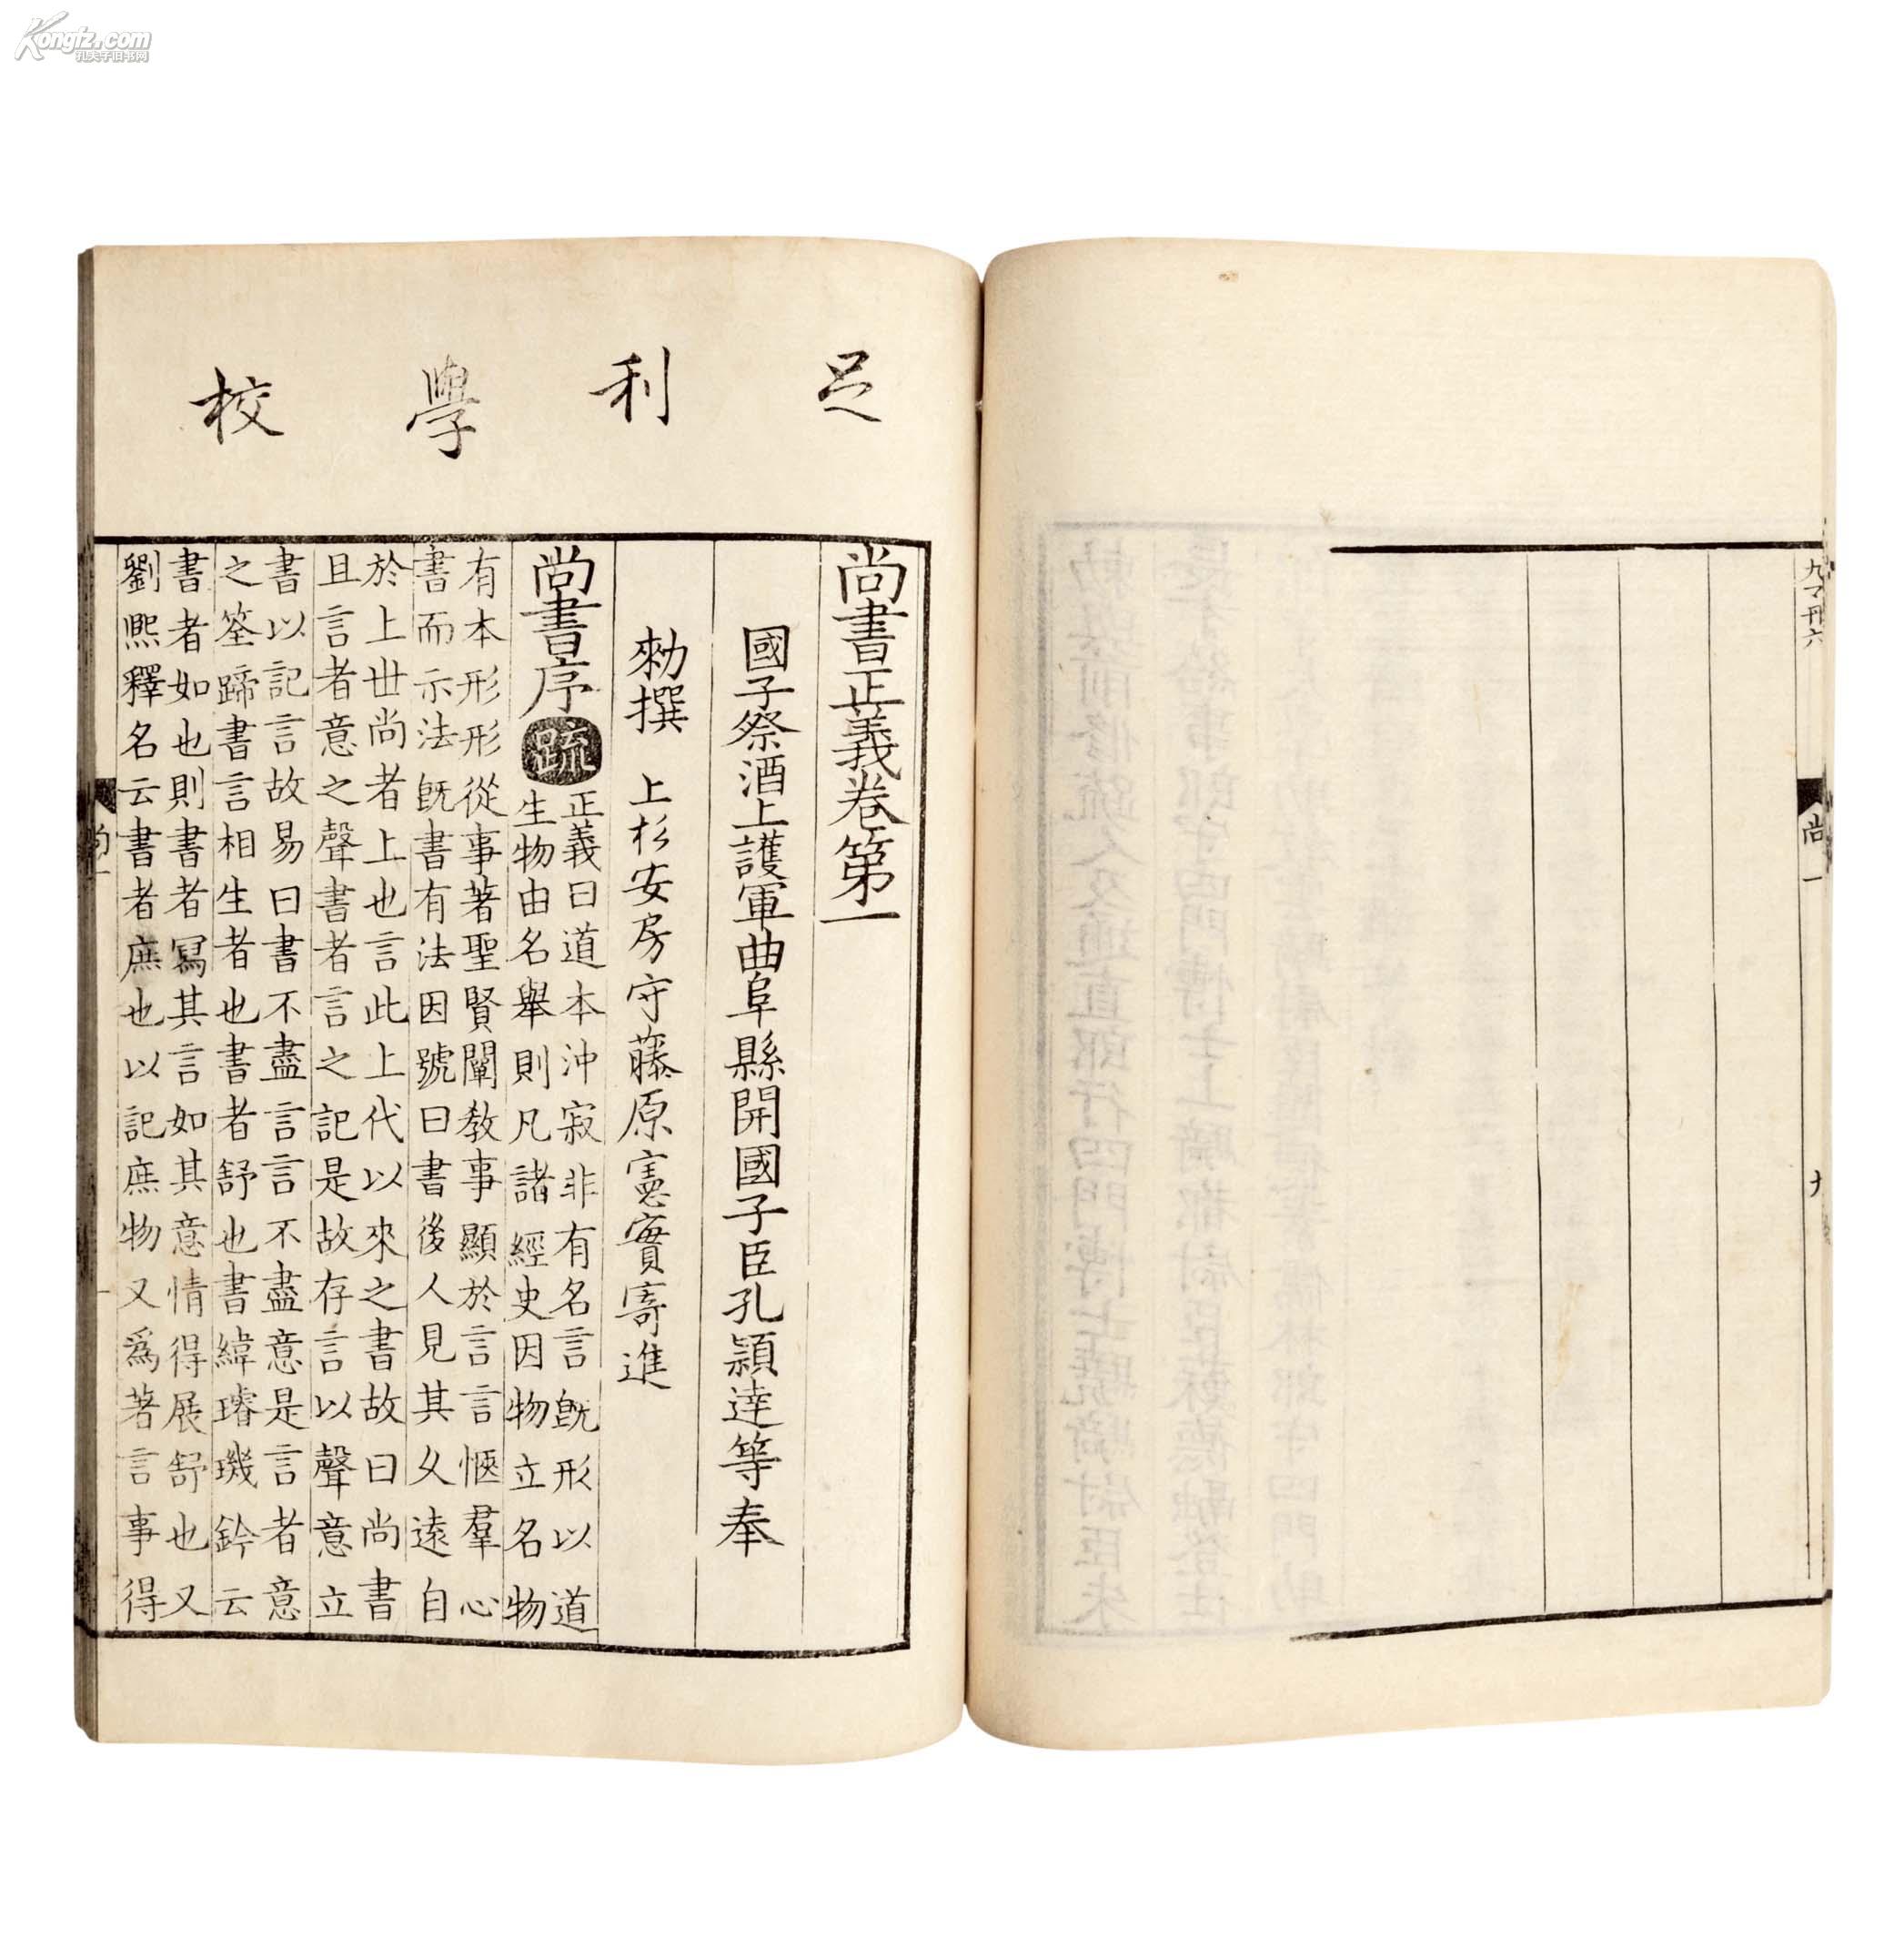 Kongfz.com
孔夫子旧书网
足利學校
九丁冊六
尚一
尚書正義卷第一
國子祭酒上護軍曲阜縣開國子臣孔穎達等奉
勑撰
上杉安房守藤原憲實寄進
尚書序 疏
正義曰道本沖寂非有名言旣形以道
生物由名舉則凡諸經史因物立名物
有本形形從事著聖賢闡教事顯於言言愜羣心
書而示法旣書有法因號曰書後人見其久遠自
於上世尚者上也言此上代以來之書故曰尚書
且言者意之聲書者言之記是故存言以聲意立
書以記言故易曰書不盡言言不盡意是言者意
之筌蹄書言相生者也書者舒也書緯璿璣鈐云
書者如也則書者寫其言如其意情得展舒也又
劉熙釋名云書者庶也以記庶物又爲著言事得